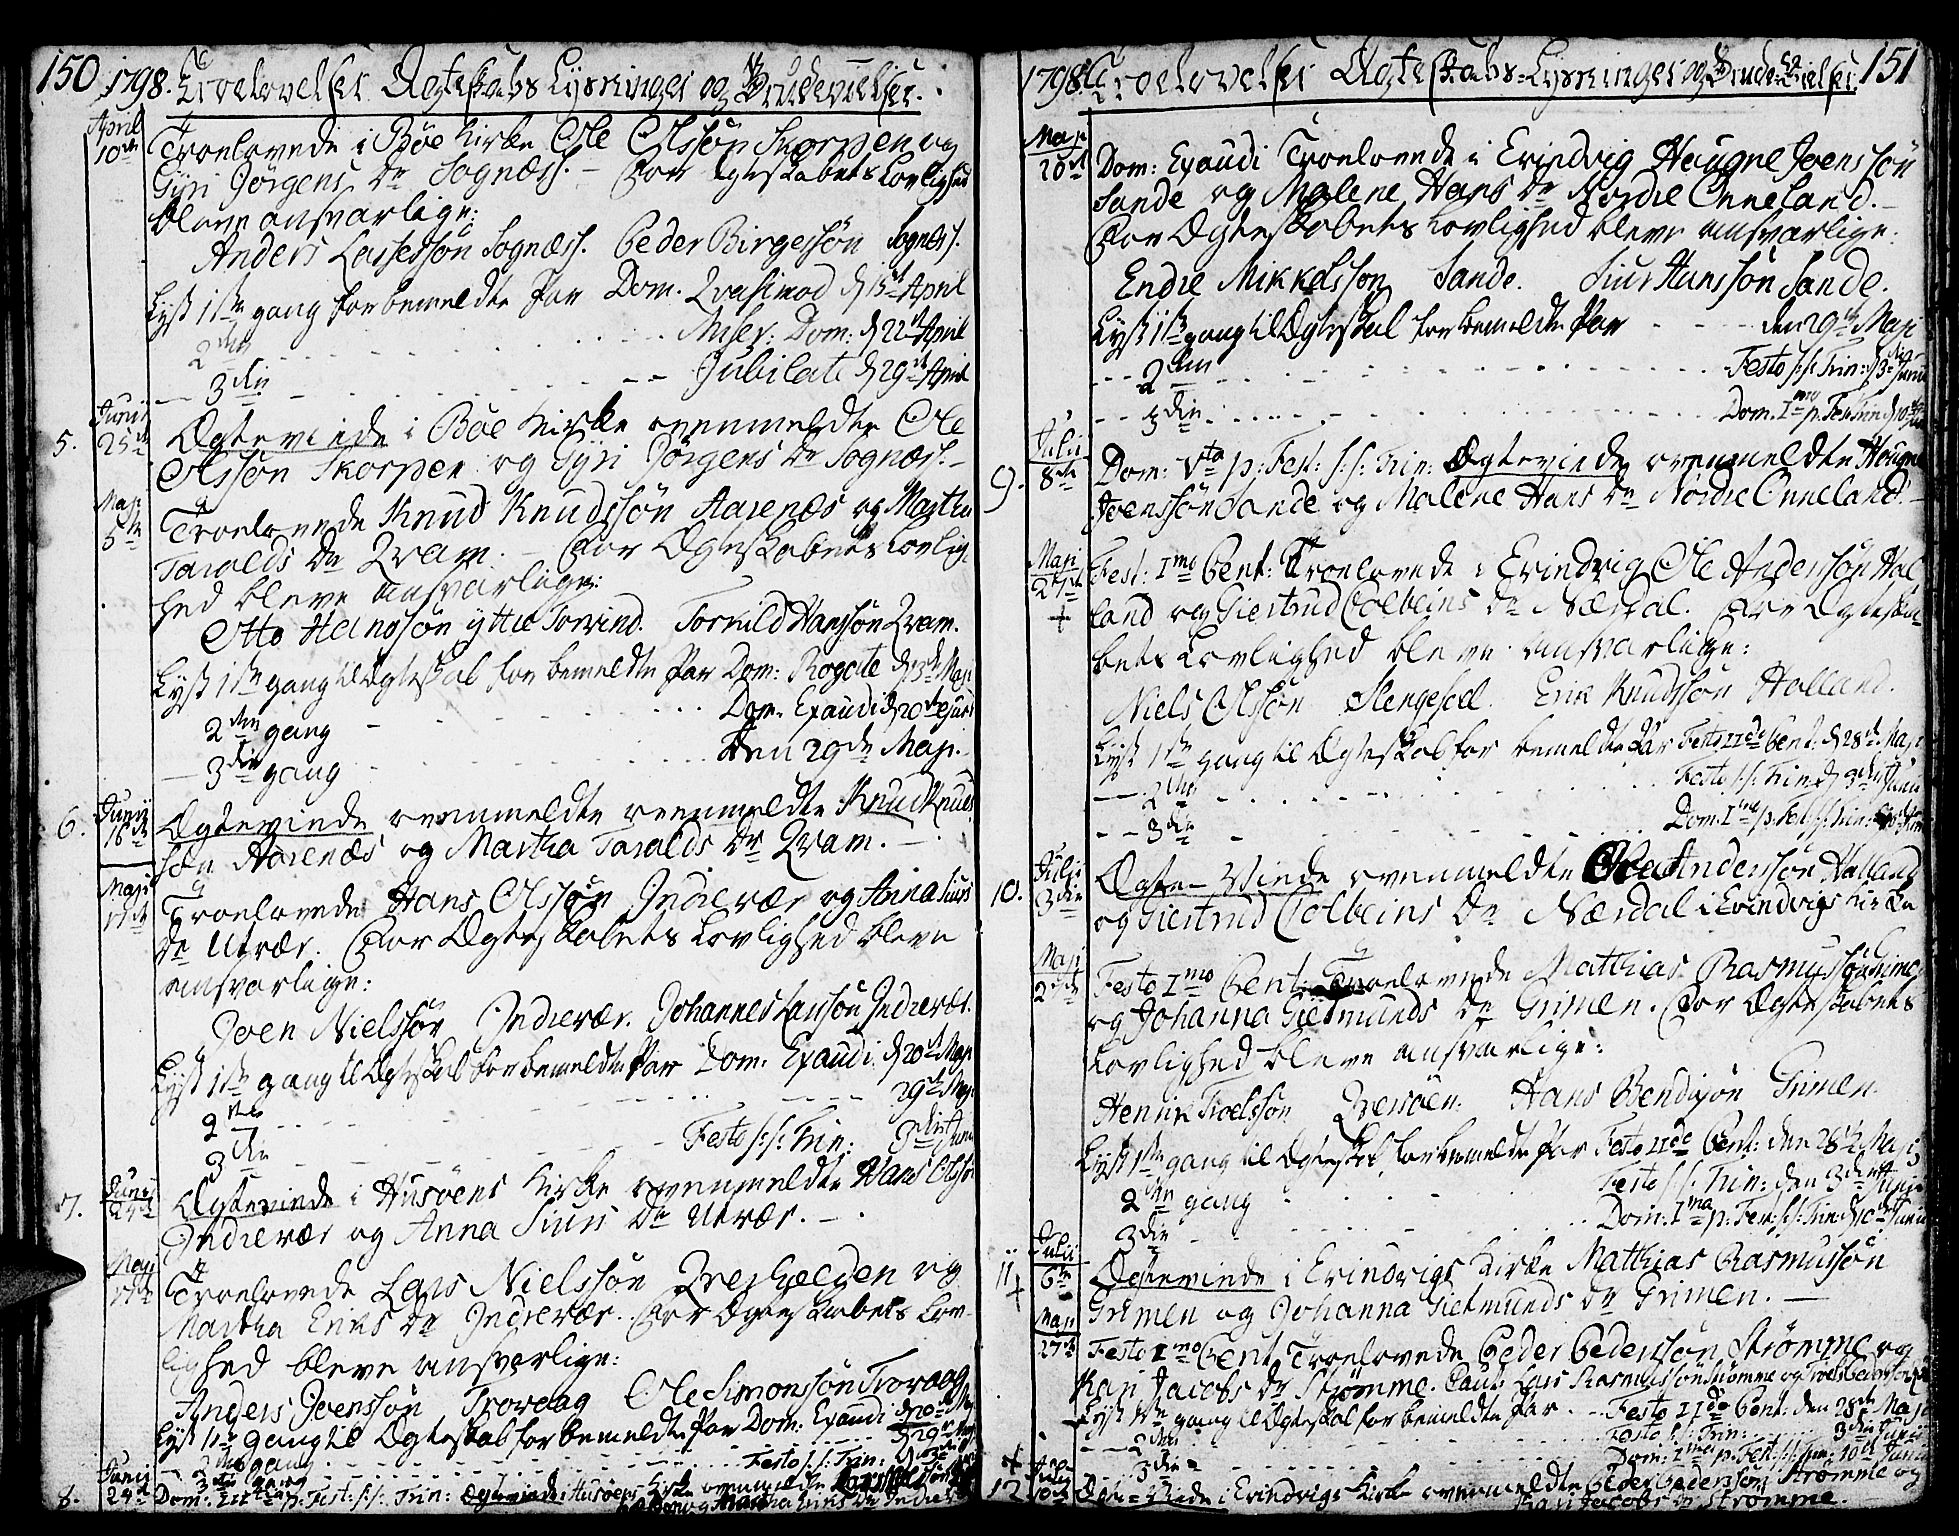 150 1798. Troelovelser Ægteskabs Lysninger og Brudevielser.
April
10de Troelovede i Böe Kirke Ole Olssön Skorpen og
Gyri Jörgens Dr Sognæss. – For Ægteskabets Lovlighed
bleve ansvarlige:
Anders Lassessön Sognæss. Peder Birgessön Sognæss.
Lyst 1ste gang for bemeldte Par Dom. Qvasimod d 15de April
2den - - - Miser: Dom: d 22de April
3die - - - Jubilate d 29de April
5. Junii
25de Ægteviede i Böe Kirke ovenmeldte Ole
Olssön Skorpen og Gyri Jörgens Dr Sognæss. –
Maji
5te Troelovede Knud Knudssön Aarenæs og Martha
Taralds Dr Qvam. – For Ægteskabets Lovlig-
hed bleve ansvarlige:
Otto Hanssön yttre Torvind. Torkild Hanssön Qvam.
Lyst 1ste gang til Ægteskab for bemeldte Par Dom: Rogate d 13de Maji
2den gang - - - Dom. Exaudi d 20de
3die gang - - - Den 29de Maji.
6. Junii
16de Ægteviede ovenmeldte Knud Knuds
sön Aarenæs og Martha Taralds Dr Qvam. –
Maji
17de Troelovede Hans Olssön Indrevær og Anna Siurs
Dr Utvær. For Ægteskabets Lovlighed bleve
ansvarlige:
Joen Nielssön Indrevær. Johannes Larssön Indrevær.
Lyst 1ste gang til Ægteskab for bemeldte Par Dom: Exaudi d 20de Maji
2den - - - 29de Maji
3die - - - Festo s: s: Trin: 3die Junii
7. Junii
24de Ægteviede i Husöens Kirke ovenmeldte Hans Olssön
Indrevær og Anna Siurs Dr Utvær. –
Maji
17de Troelovede Lars Nielssön og
Martha Eriks Dr Indrevær. For Ægteskabets Lov-
lighed bleve ansvarlige:
Anders Joenssön Trovaag Ole Simonssön Trovaag
Lyst 1ste gang til Ægteskab for bemeldte Par Dom: Exaudi d 20de Maji
2den gang - - - 29de
- - - Festo s: s: Trin:
8. Junii
24de Dom: p: Fest: s: s: Trin: Ægteviede i Husöens Kirke ovenmeldte
Martha Eriks Dr Indrevær
1798. Troelovelser Ægteskabs-Lysninger og Brude-Vielser. 151
Maji
20de Dom: Exaudi Troelovede i Evindvig Haugne Joenssön
Sande og Malene Hans Dr Nordre Onneland. –
For Ægteskabets Lovlighed bleve ansvarlige:
Endre Mikkelssön Sande. Siur Hanssön Sande.
Lyst 1ste gang til Ægteskab for bemeldte Par - - - den 29de Maji
2den - - - Festo s: s: Trin: d 3die Junii
3die - - - Dom. 1ma p. Fest Trin d 10de
9. Julii
8de Dom: Vta p: Fest: s: s: Trin: Ægteviede ovenmeldte Haugne
Joenssön Sande og Malene Hans Dr Nordre Onneland. –
Maji
27de Fest: 1mo Pent: Troelovede i Evindvig Ole Anderssön Hal
+ land og Giertrud Colbeins Dr Nærdal. For Ægteska-
bets Lovlighed bleve ansvarlige:
Niels Olssön Slengesoel. Erik Knudssön Holland.
Lyst 1ste gang til Ægteskab for bemeldte Par Festo IIdo Pent: d 28de Maji
2den - - - Festo s: s: Trin d 3die Junii
3die - - - Dom: 1ma p. Fest s: s: Trin:
10. Julii
3die Ægte-Viede ovenmeldte Ole Anderssön Halland
og Giertrud Colbeins Dr Nærdal i Evindvigs Kirke
Maji
27de Festo 1mo Pent: Troelovede Matthias Rasmussön Grimen
og Johanna Gietmunds Dr Grimen. For Ægteskabets
Lovlighed bleve ansvarlige:
Henrik Troelssön Hans Bendixsön Grimen.
Lyst 1ste gang til Ægteskab for bemeldte Par Festo IIdo Pent: den 28de Maji
2den gang - - - Festo s: s: Trin: den 3die Junii
3die - - - Dom: 1ma p: Fest: s: s: Trin: d 10de Junii
11. Julii
+ 6te Ægteviede i Evindvigs Kirke Matthias Rasmussön
Grimen og Johanna Gietmunds Dr Grimen. –
Maji
27de Festo 1mo Pent Troelovede Peder Pederssön Strömme og
Kari Jacobs Dr Strömme. Caut: Lars Rasmussön Strömme og Troels
Lyst 1ste gang til Ægteskab for bemeldte Par. - - Festo IIdo Pent: den 28de Maji
2den - - - Festo s: s: Trin: 3die Junii
3die - - - Dom: 1ma p. Fest: s: s: Trin: 10de Junii
+ Julii
12. Ægte-Viede i Evindvigs Kirke ovenmeldte Peder Pederssön Strömme og
Kari Jacobs Dr Strömme.